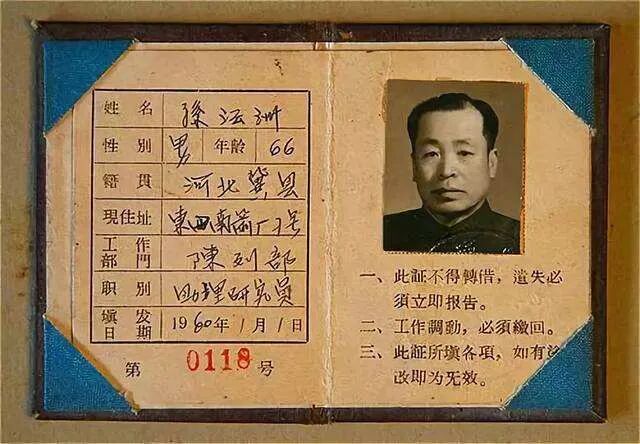 姓名 孫 洲
性别 男 年龄 66
籍貫 河北冀县
現住址 東四南 号
工作
部門 陳列部
职别 助理研究員
塡发
日期 1960年1月1日
第 0118 号
一、此証不得轉借，遺失必
須立即报告。
二、工作調動，必須繳回。
三、此証所塡各項，如有塗
改即为无效。